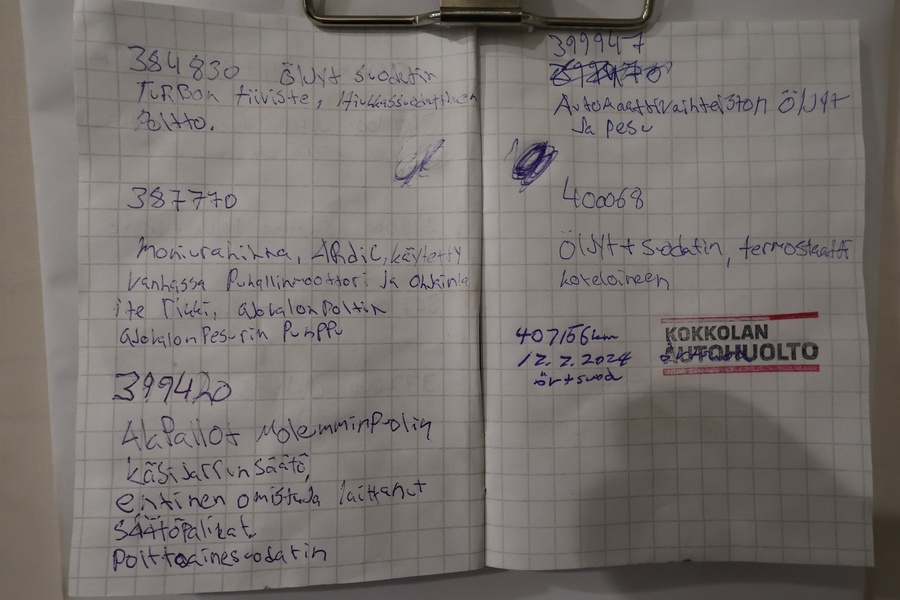 384830 Öljyt suodatin
Turbon tiiviste, Hiukkassuodattimen
Poltto.
387770
Moniurahihna, ARdic, käytetty
vanhassa Puhallinmoottori ja ohjainla
ite Rikki, ajovalon Poltin
ajovalonPesurin Pumppu
399420
AlaPallot Molemminpuolin
käsijarrun säätö,
entinen omistaja laittanut
säätöpalikat.
Polttoainesuodatin
399947
Automaattivaihteiston Öljyt
Ja pesu
400068
Öljyt+suodatin, termostaatti
koteloineen
407156km
12.2.2024
ör+suod
KOKKOLAN
AUTOHUOLTO